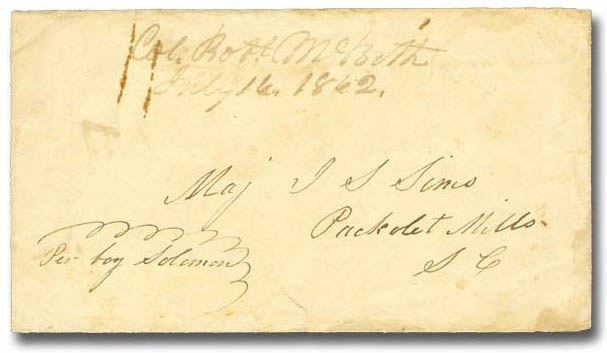 Col. Robt. McBeth
July 16. 1862.
Maj J S Sims
Packolet Mills
S C
Per boy Solomon